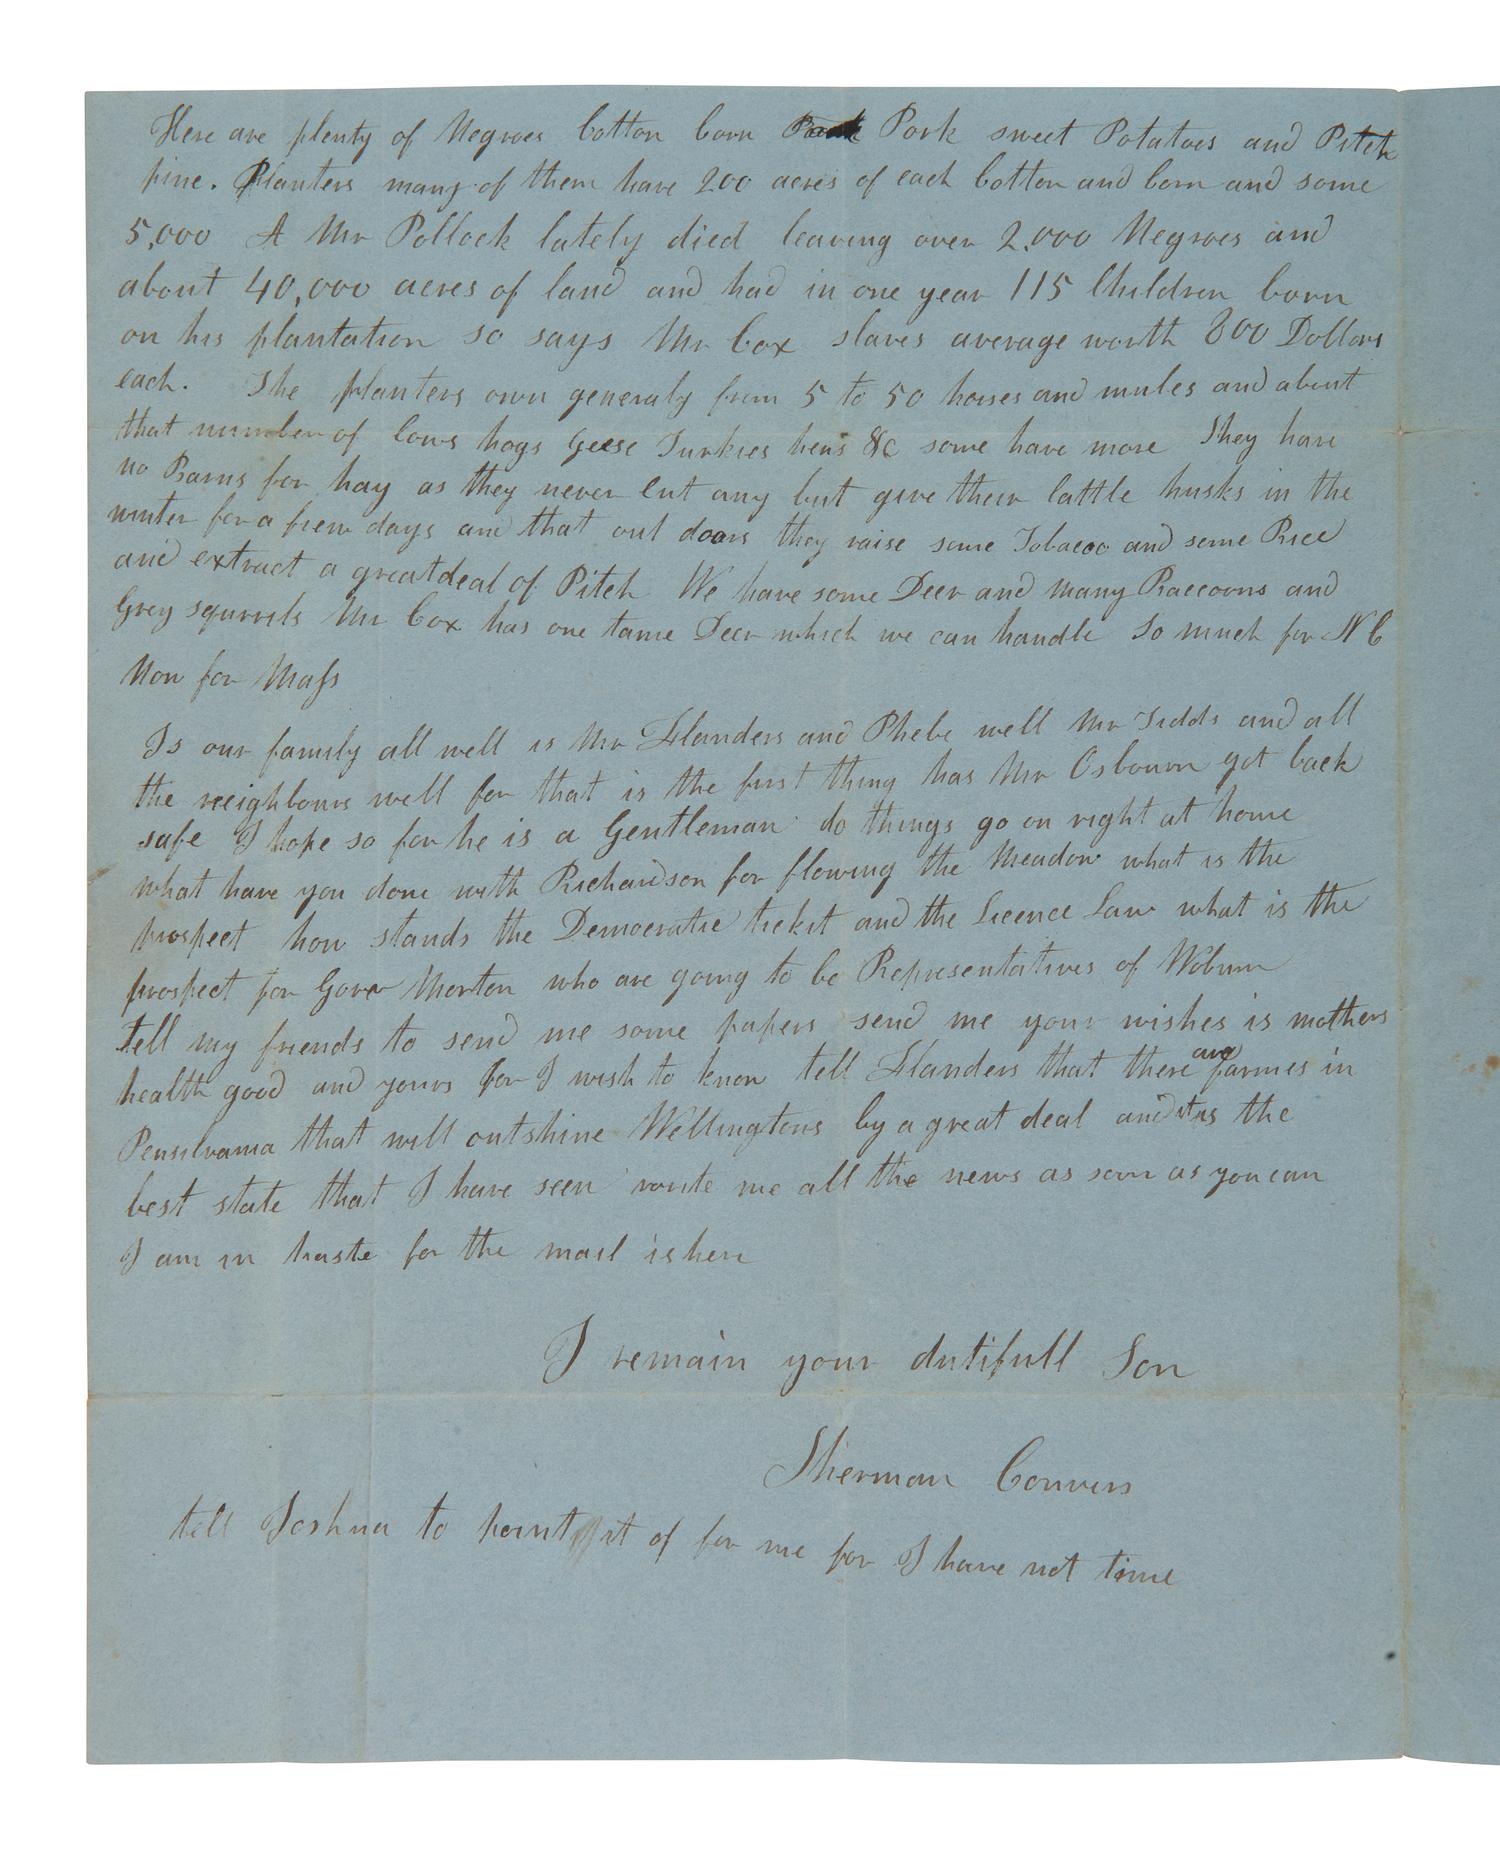 Here are plenty of Negroes Cotton Corn Pork sweet Potatoes and Pitch
pine. Planters many of them have 200 acres of each Cotton and Corn and some
5,000 A Mr Pollock lately died leaving over 2,000 Negroes and
about 40,000 acres of land and had in one year 115 Children born
on his plantation so says Mr Cox slaves average worth 800 Dollars
each. The planters own generaly from 5 to 50 horses and mules and about
that number of Cows hogs Geese Turkies hens &c some have more They have
no Barns for hay as they never Cut any but give their Cattle husks in the
winter for a few days and that out doors they raise some Tobacco and some Rice
and extract a great deal of Pitch We have some Deer and many Raccoons and
Grey squrrels Mr Cox has one tame Deer which we can handle So much for N C
Now for Mass
Is our family all well is Mr Flanders and Phebe well Mr Tidds and all
the neighbours well for that is the first thing has Mr Osbourn got back
safe I hope so for he is a Gentleman do things go on right at home
what have you done with Richardson for flowing the Meadow what is the
prospect how stands the Democratic ticket and the Licence Law what is the
prospect for Gover Morton who are going to be Representatives of Woburn
tell my friends to send me some papers send me your wishes is mothers
health good and yours for I wish to know tell Flanders that there are farmes in
Pensilvania that will outshine Wellingtons by a great deal and it is the
best state that I have seen write me all the news as soon as you can
I am in haste for the mail is here
I remain your dutifull Son
Sherman Convers
tell Joshua to it of for me for I have not time